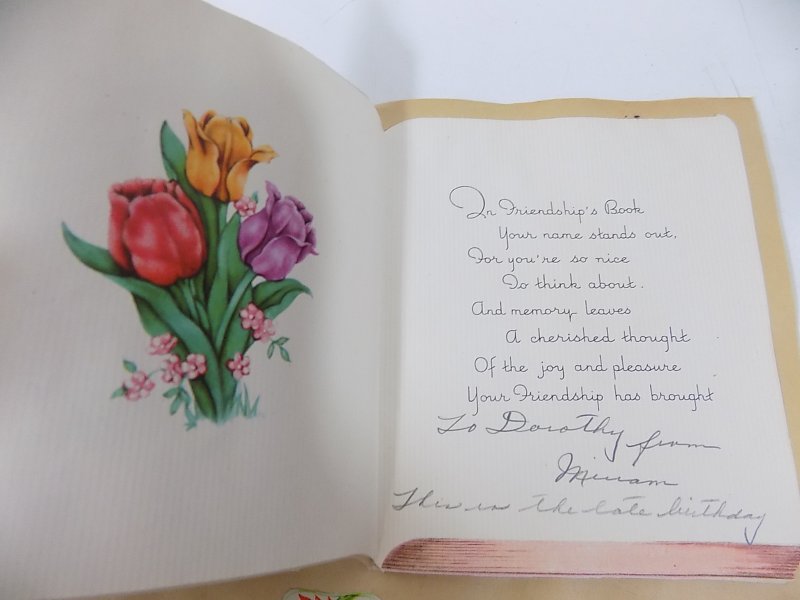 In Friendship's Book
Your name stands out,
For you're so nice
To think about.
And memory leaves
A cherished thought
Of the joy and pleasure
Your Friendship has brought
To Dorothy from
Miriam
This is the late birthday